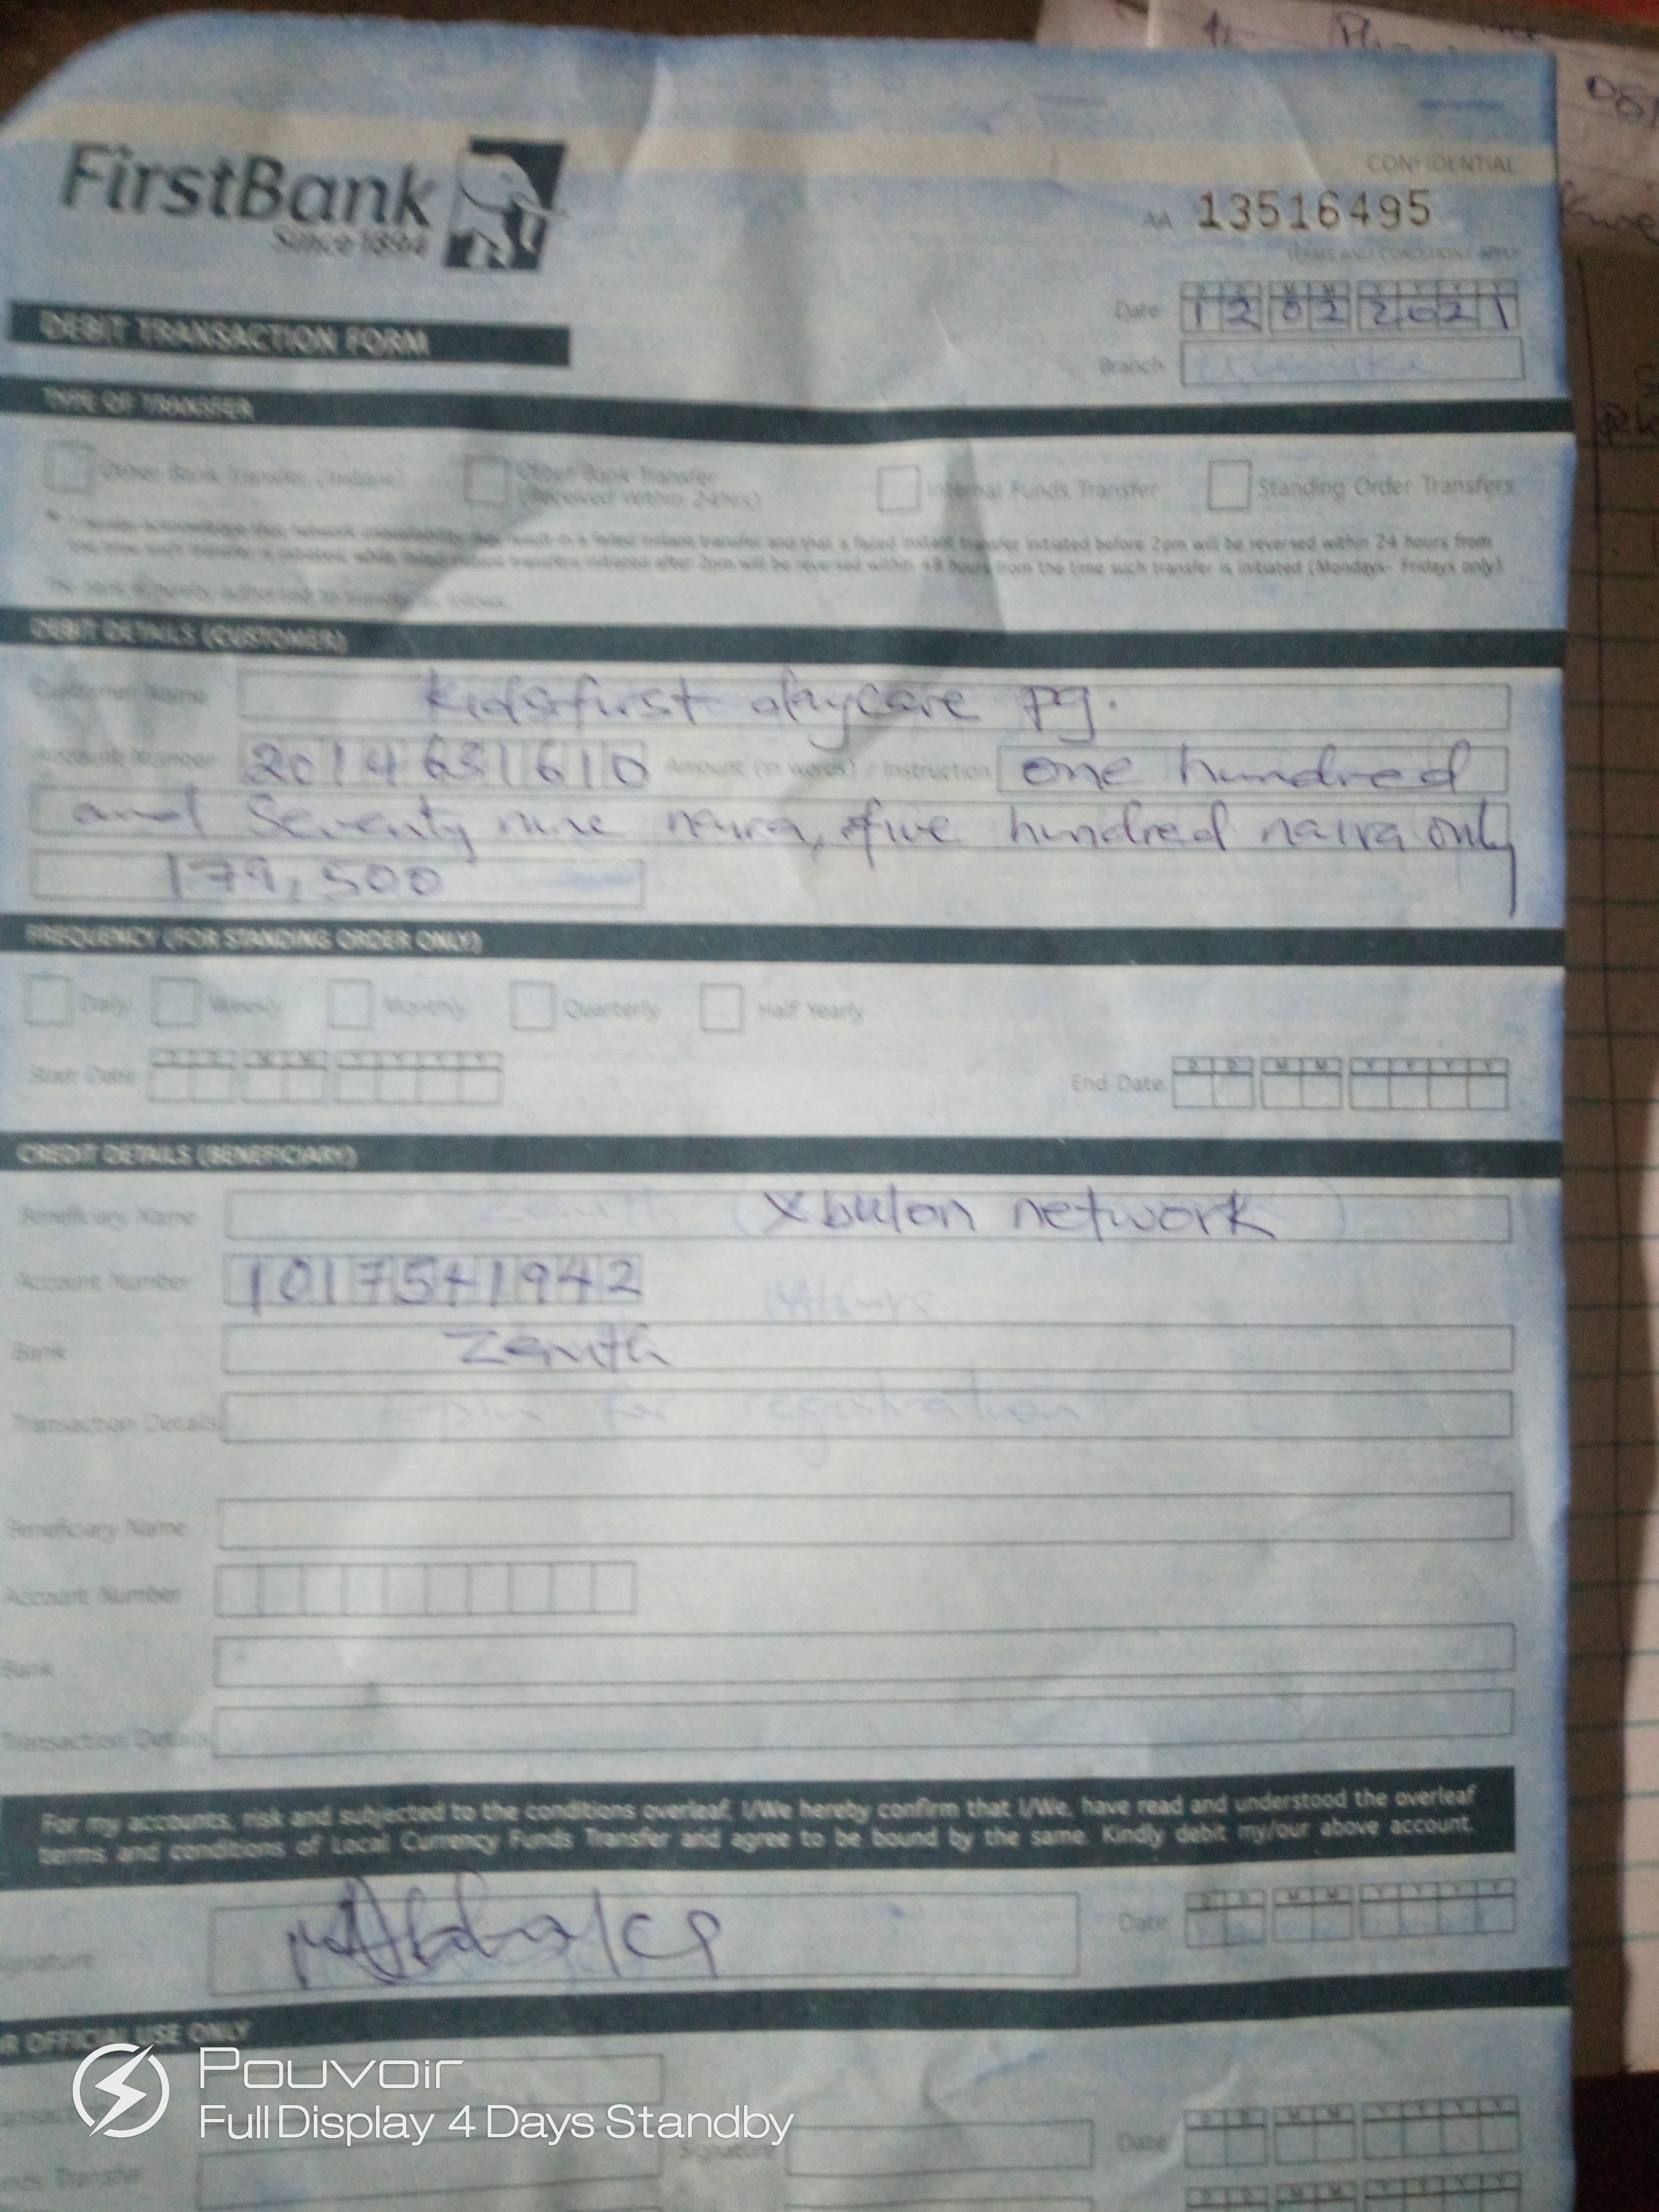 FirstBank
Since 1894
CONFIDENTIAL
AA 13516495
TERMS AND CONDITIONS APPLY
DEBIT TRANSACTION FORM
Date D D M M Y Y Y Y
12 02 2021
Branch
TYPE OF TRANSFER
Other Bank Transfer (Instant)
Other Bank Transfer
(Received Within 24hrs)
Internal Funds Transfer
Standing Order Transfers
* I hereby acknowledge that network unavailability may result in a failed instant transfer and that a failed instant transfer initiated before 2pm will be reversed within 24 hours from
the time such transfer is initiated, while failed instant transfers initiated after 2pm will be reversed within 48 hours from the time such transfer is initiated (Mondays- Fridays only)
The bank is hereby authorised to transfer as follows
DEBIT DETAILS (CUSTOMER)
Customer Name kidsfirst daycare pg.
Account Number 2014631610 Amount (in words) / Instruction one hundred
and seventy nine naira, five hundred naira only
179,500
FREQUENCY (FOR STANDING ORDER ONLY)
Daily Weekly Monthly Quarterly Half Yearly
Start Date D D M M Y Y Y Y End Date D D M M Y Y Y Y
CREDIT DETAILS (BENEFICIARY)
Beneficiary Name Zenith (Xbulon network)
Account Number 1017541942
Bank Zenith
Transaction Details Epin for registration
Beneficiary Name
Account Number
Bank
Transaction Details
For my accounts, risk and subjected to the conditions overleaf, I/We hereby confirm that I/We, have read and understood the overleaf
terms and conditions of Local Currency Funds Transfer and agree to be bound by the same. Kindly debit my/our above account.
Signature
Date D D M M Y Y Y Y
R OFFICIAL USE ONLY
Signature
Date D D M M Y Y Y Y
nds Transfer
D D M M Y Y Y Y
Pouvoir
Full Display 4 Days Standby